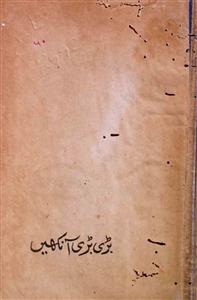 بڑی بڑی آنکھیں